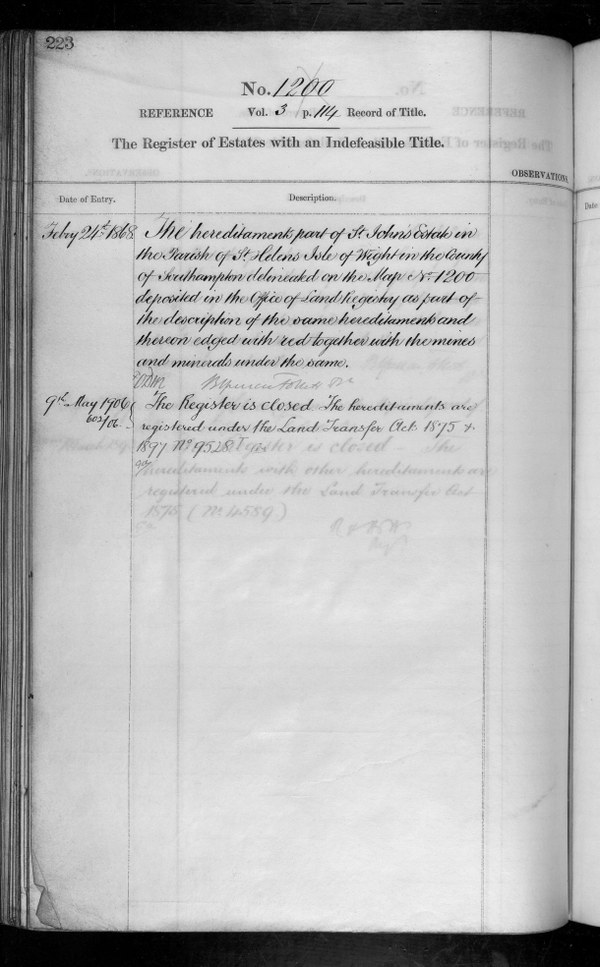 223
No. 1200
REFERENCE Vol. 3 p. 114 Record of Title.
The Register of Estates with an Indefeasible Title.
OBSERVATIONS.
Date of Entry.
Description.
Date
Feby 24th 1868
The hereditaments, part of St Johns Estate in
the Parish of St. Helens Isle of Wight in the County
of Southampton delineated on the Map No. 1200
deposited in the Office of Land Registry as part of
the description of the same hereditaments and
thereon edged with red together with the mines
and minerals under the same.
9th May 1906
602/06
The Register is closed. The hereditaments are
registered under the Land Transfer Acts 1875 &
1897 No. 9528